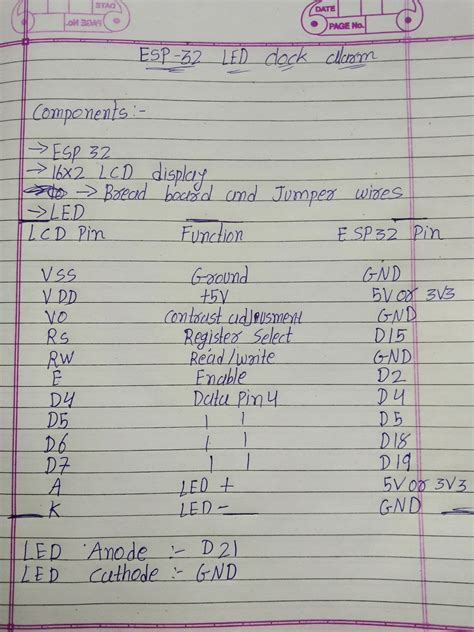 DATE
PAGE No.
DATE
PAGE No.
ESP-32 LED clock alarm
Components:-
→ESP 32
→16x2 LCD display
→ Bread board and Jumper wires
→LED
LCD Pin Function ESP32 Pin
VSS Ground GND
VDD +5V 5V or 3V3
VO Contrast adjeusment GND
Rs Register Select D15
RW Read/write GND
E Enable D2
D4 Data Pin 4 D4
D5 | | D5
D6 | | D18
D7 | | D19
A LED + 5V or 3V3
K LED - GND
LED Anode :- D21
LED Cathode :- GND